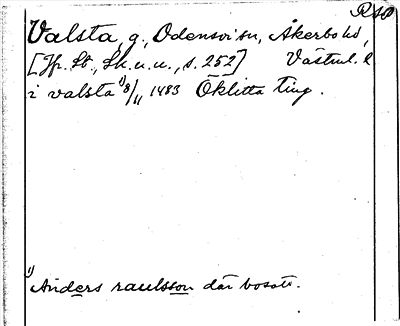 RAP
Valsta, g., Odensvi sn, Åkerbo hd,
[Jfr. St., Sk. u. u., s. 252] Västml. l
i valsta 1) 8/11 1483 Öklitta ting.
1) Anders raulsson där bosatt.